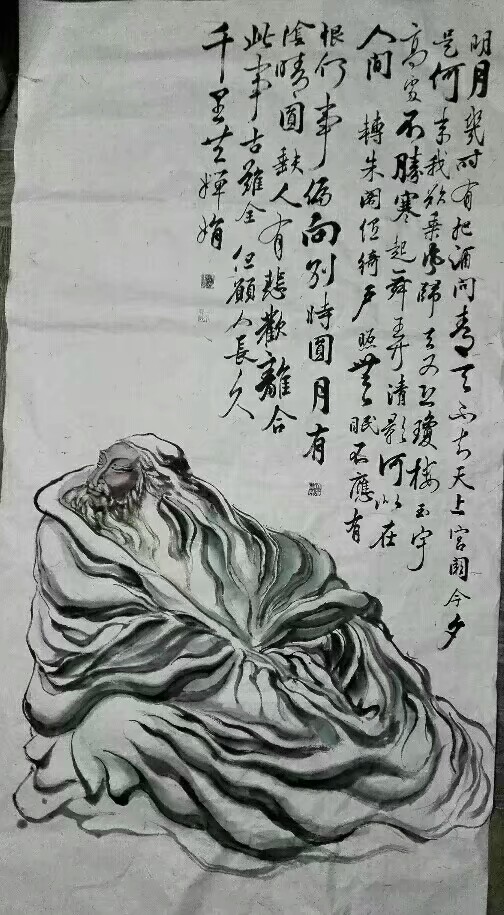 明月幾时有把酒問青天不知天上宫阙今夕
是何年我欲乘风歸去又恐瓊楼玉宇
高處不勝寒起舞弄清影何似在
人间轉朱阁低綺户照無眠不應有
恨何事偏向别時圆月有
陰晴圆缺人有悲歡離合
此事古難全但願人長久
千里共嬋娟